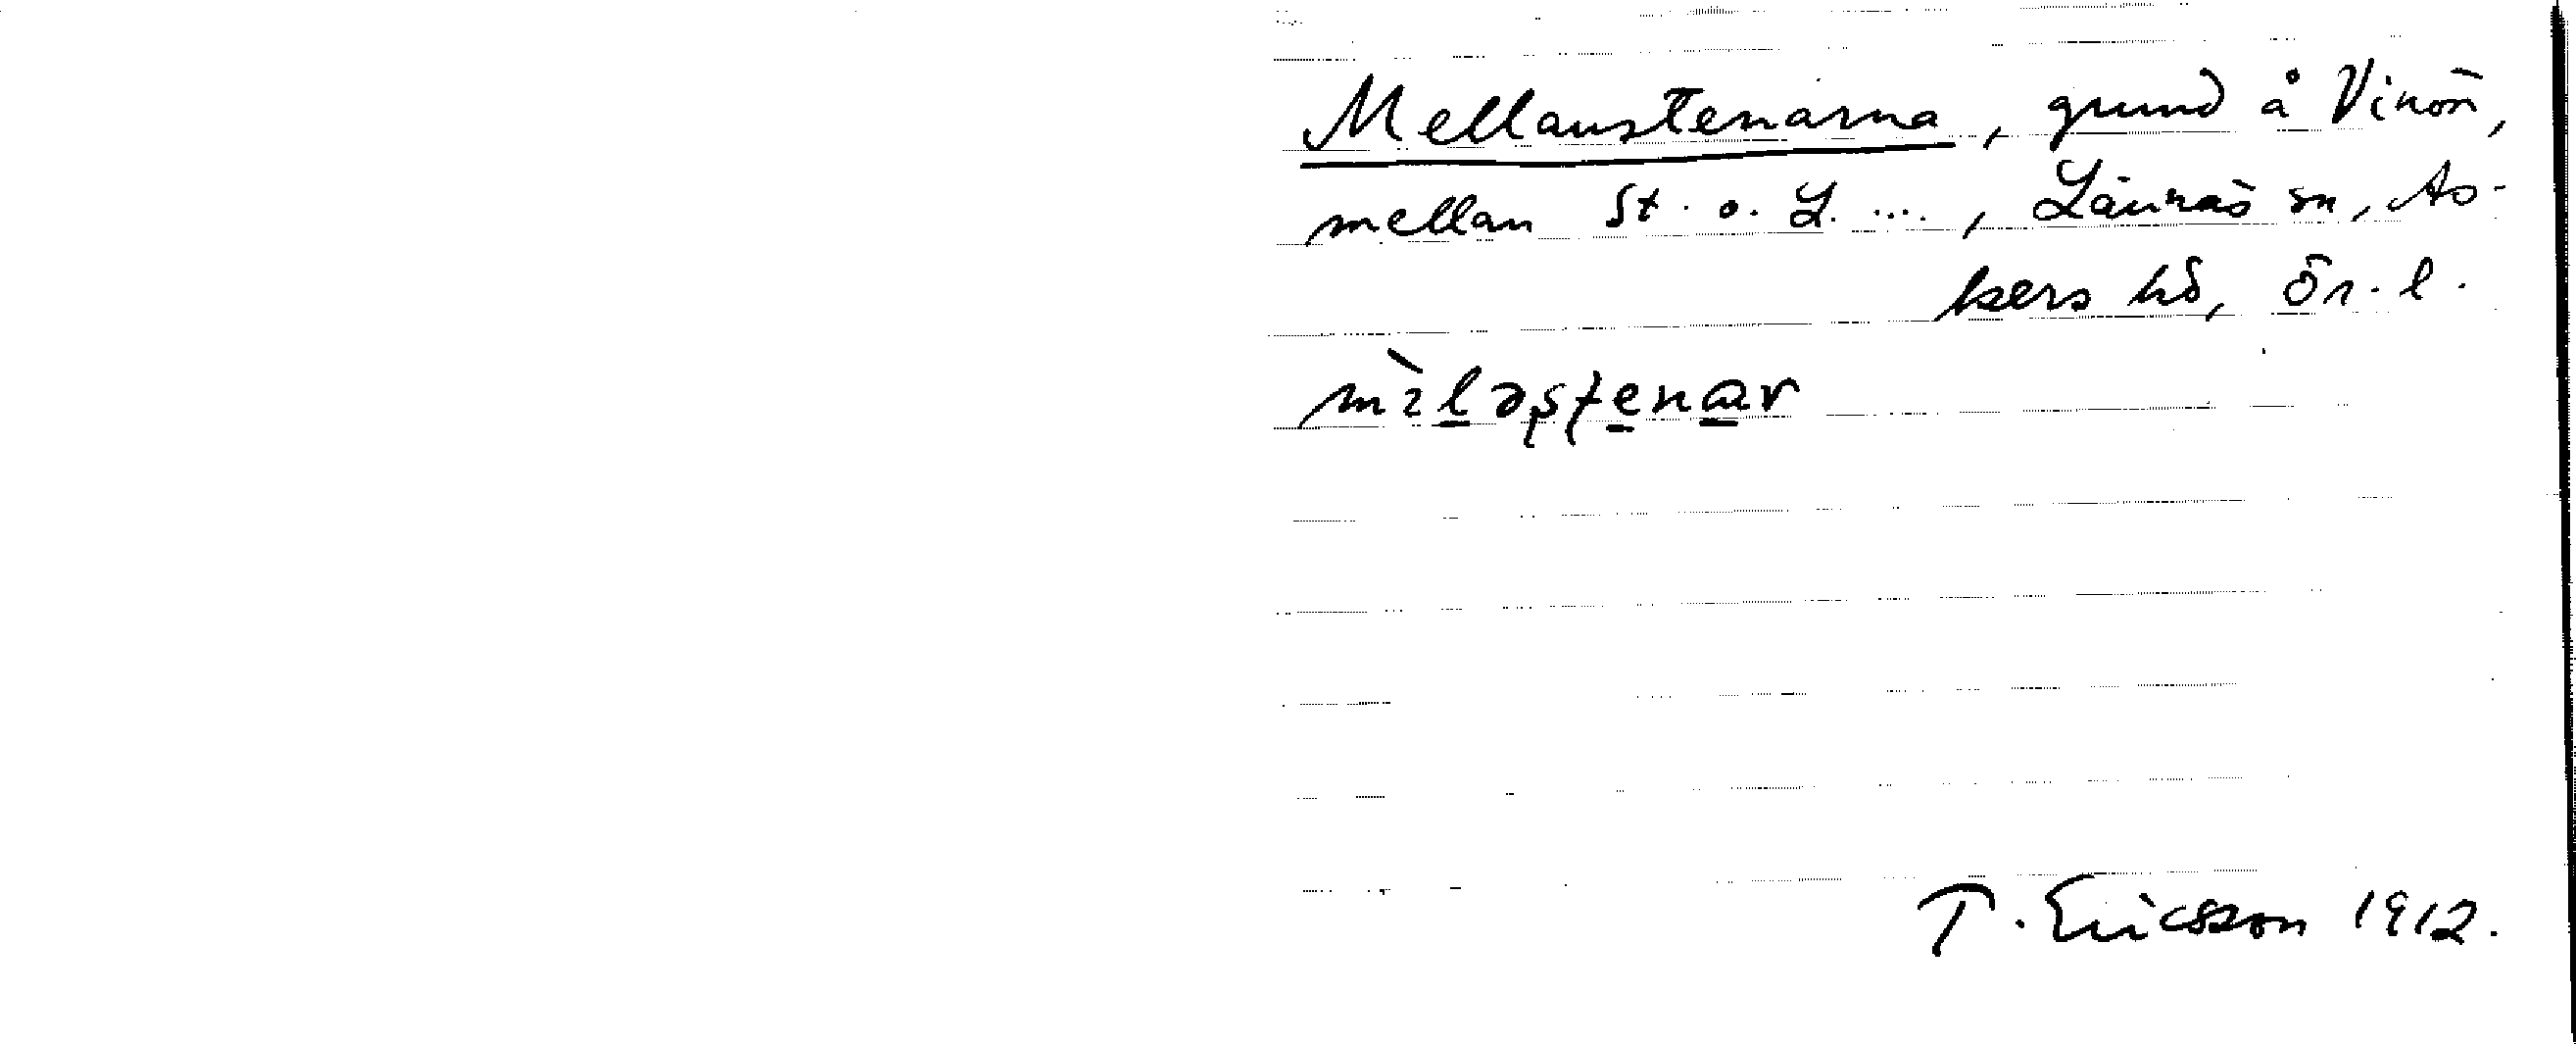 Mellanstenarna, grund å Vinön,
mellan St. o. L. ...., Lännäs sn, As-
kers hd, Ör. l.
T. Ericsson 1912.